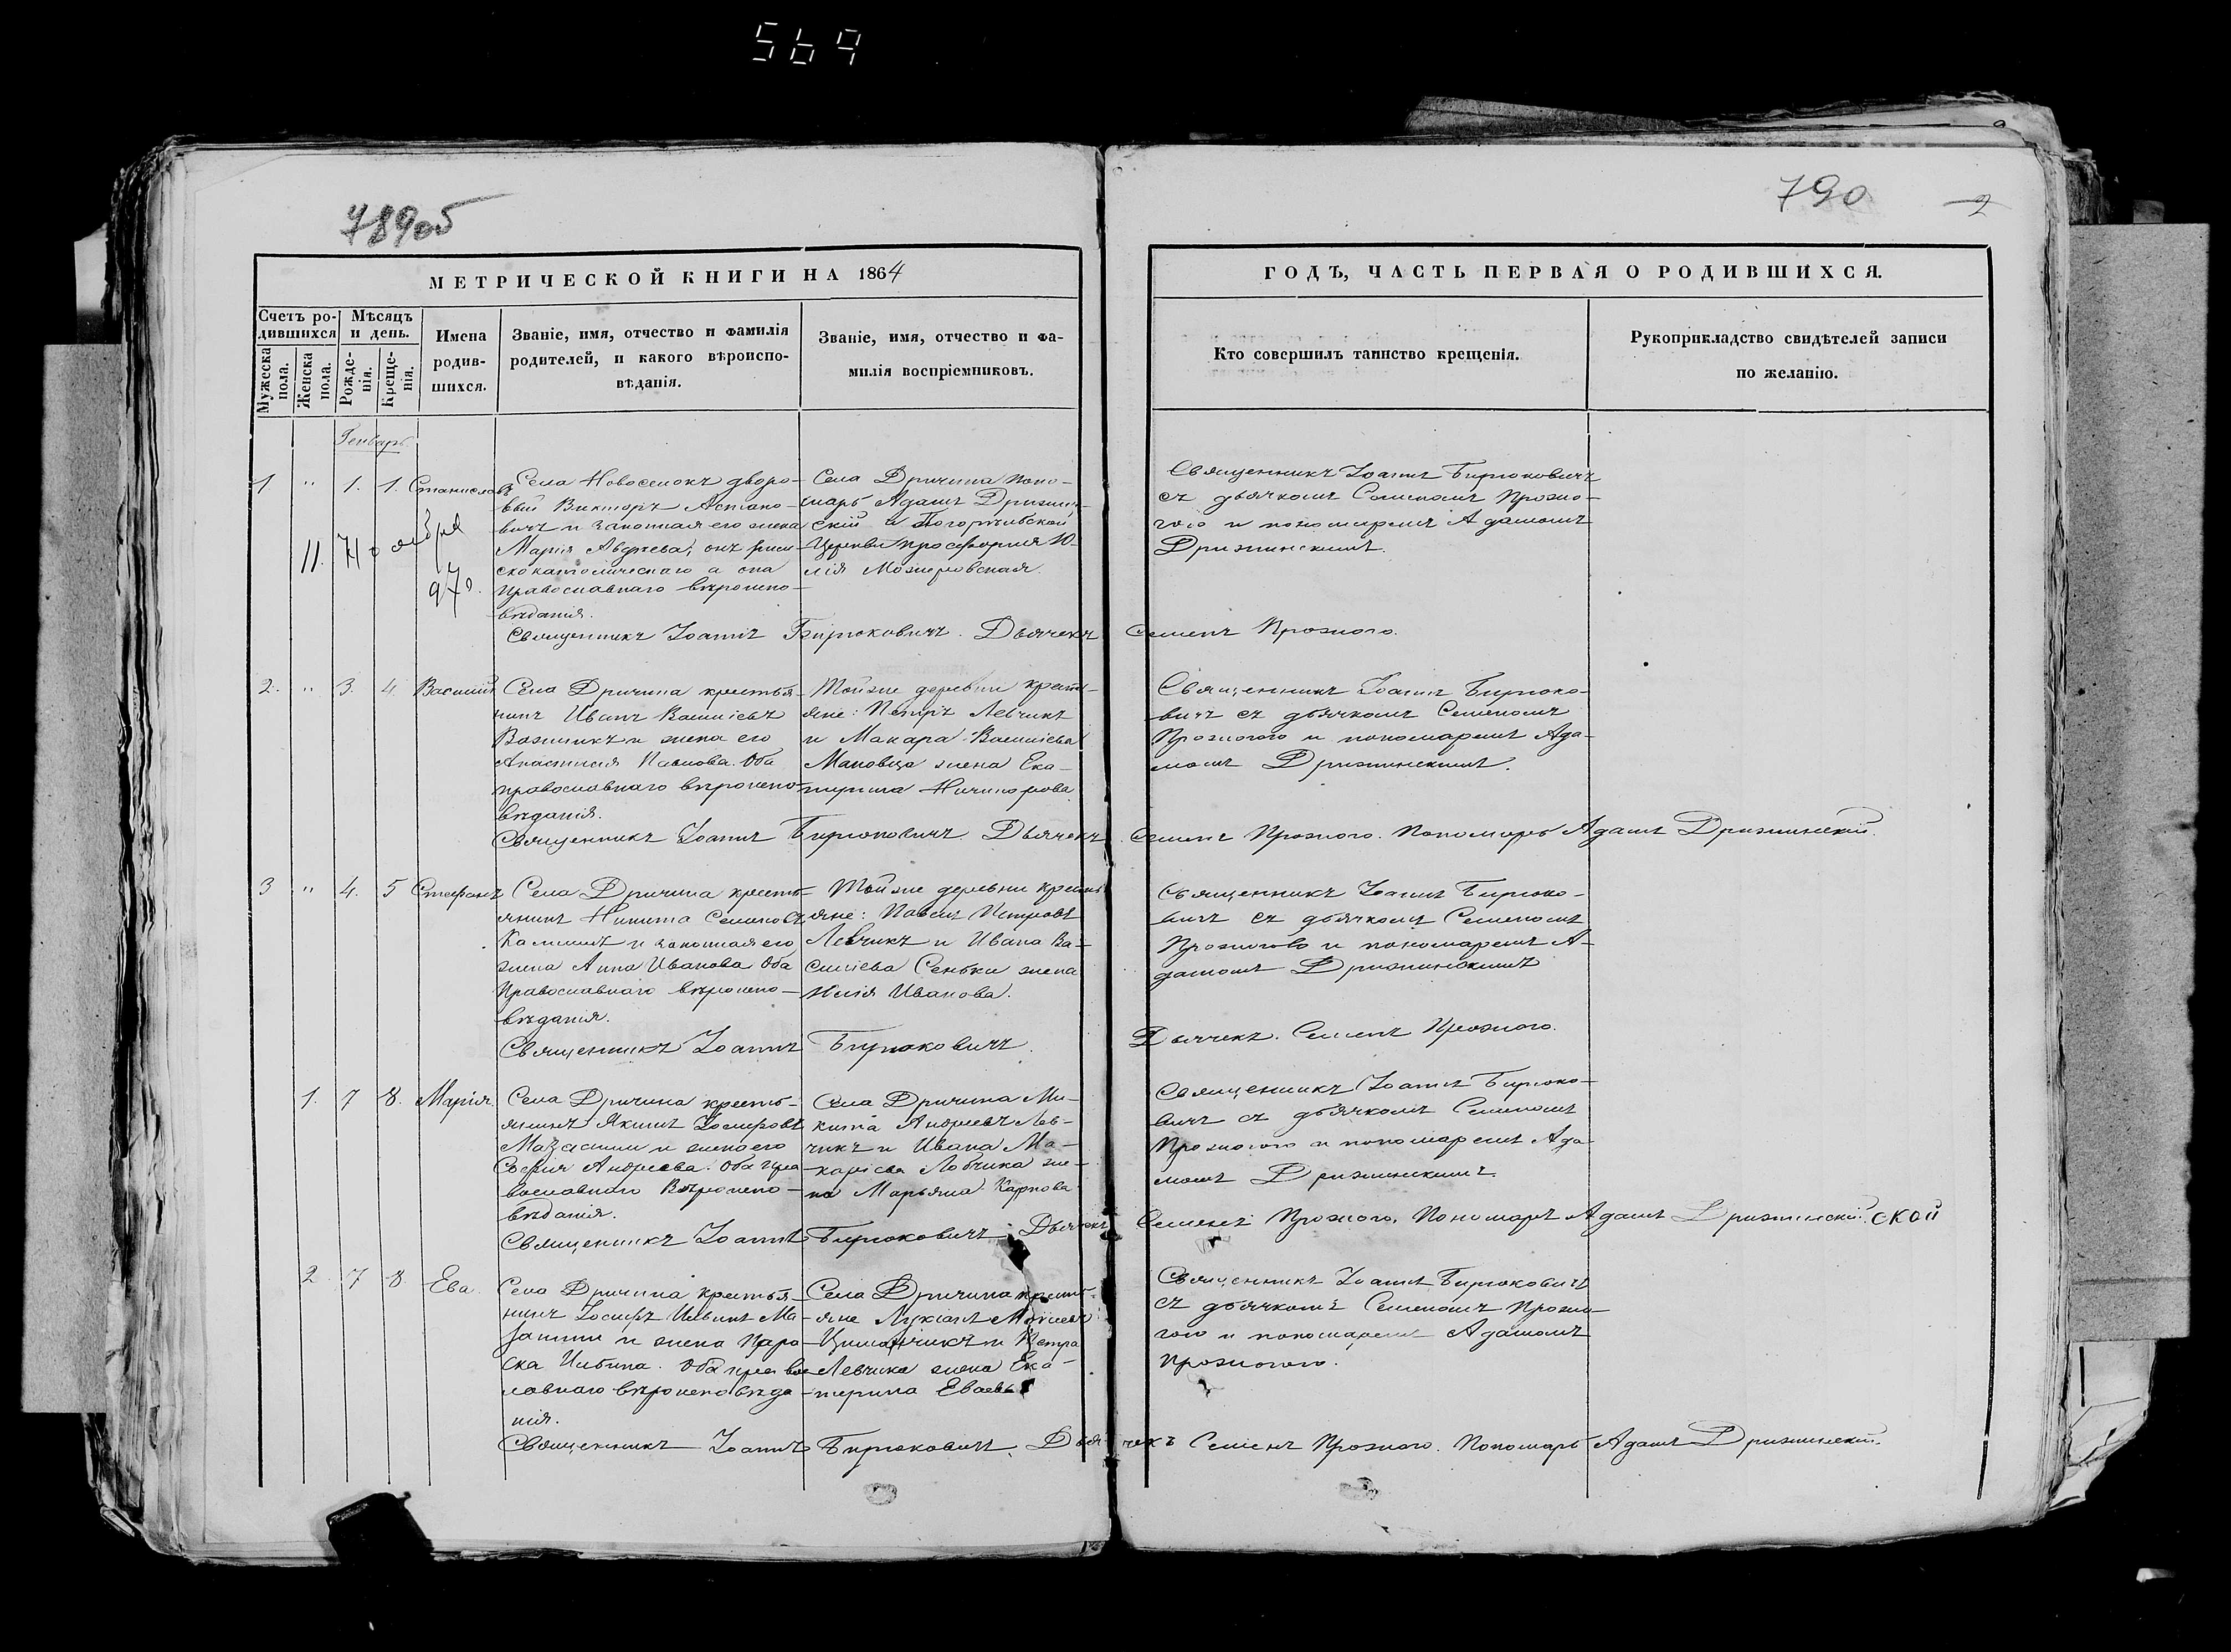 569
789об
790
2
МЕТРИЧЕСКОЙ КНИГИ НА 1864
ГОДЪ, ЧАСТЬ ПЕРВАЯ О РОДИВШИХСЯ.
Счетъ ро-
дившихся
Мужеска
пола.
Женска
пола.
Мѣсяцъ
и день.
Рожде-
нія.
Креще-
нія.
Имена
родив-
шихся.
Званіе, имя, отчество и фамилія
родителей, и какого вѣроиспо-
вѣданія.
Званіе, имя, отчество и фа-
милія воспріемниковъ.
Кто совершилъ таинство крещенія.
Рукоприкладство свидѣтелей записи
по желанію.
Генварь
1 " 1. 1. Станиславъ
Села Новоселокъ дворо-
вый Викторъ
вичъ и законная его жена
Марія Авдѣева, онъ римо-
скокатолическаго а она
православнаго вѣроиспо-
вѣданія.
Села Дричина поно-
марь Адамъ Дрижин-
скій и Погорѣльской
Церкви просфорня Ю-
лія
Священникъ Іоаннъ Бирюковичъ
съ дьячкомъ Семеномъ Прожо-
гого и пономаремъ Адамомъ
Дрижинскимъ.
11.
970.
Священникъ Іоаннъ Бирюковичъ. Дьячекъ Семенъ Прожого.
2. " 3. 4. Василій
Села Дричина крестья-
нинъ Иванъ Василіевъ
и жена его
Анастасія Павлова. Оба
православнаго вѣроиспо-
вѣданія.
Тойже деревни кресть-
яне: Петръ Левчикъ
и Макара Василіева
жена Ека-
терина Ничипорова
Священникъ Іоаннъ Бирюко-
вичъ съ дьячкомъ Семеномъ
Прожогого и пономаремъ Ада-
момъ Дрижинскимъ.
Священникъ Іоаннъ Бирюковичъ. Дьячекъ Семенъ Прожого. Пономарь Адамъ Дрижинскій.
3 " 4. 5 Стефанъ
Села Дричина кресть-
янинъ Никита Семеновъ
и законная его
жена Анна Иванова Оба
Православнаго вѣроиспо-
вѣданія.
Тойже деревни кресть-
яне: Павелъ Петровъ
Левчикъ и Ивана Ва-
силіева Сеньки жена
Иванова.
Священникъ Іоаннъ Бирюко-
вичъ съ дьячкомъ Семеномъ
Прожогово и пономаремъ А-
дамомъ Дрижинскимъ
Священникъ Іоаннъ Бирюковичъ. Дьячекъ. Семенъ Прожого.
1. 7 8. Марія.
Села Дричина кресть-
янинъ Якимъ Іосифовъ
и жена его
Софія Андреева. Оба пра-
вославнаго Вѣроиспо-
вѣданія.
Села Дричина Ми-
кита Андреевъ Лев-
чикъ и Ивана Ма-
каріева Лобчика же-
на Марьяна Карпова
Священникъ Іоаннъ Бирюко-
вичъ съ дьячкомъ Семеномъ
Прожогого и пономаремъ Ада-
момъ Дрижинскимъ.
Священникъ Іоаннъ Бирюковичъ. Дьячекъ Семенъ Прожого. Пономарь Адамъ Дрижинской. ской
2. 7 8. Ева.
Села Дричина крестья-
нинъ Іосифъ Ильинъ Ма-
и жена Пара-
ска Ильина. Оба правос-
лавнаго вѣроисповѣда-
нія.
Села Дричина кресть-
яне Лукіанъ
и Петра
Левчика жена Ека-
терина
Священникъ Іоаннъ Бирюковичъ
съ дьячкомъ Семеномъ Прожо-
гого и пономаремъ Адамомъ
Прожогого.
Священникъ Іоаннъ Бирюковичъ. Дьячекъ Семенъ Прожого. Пономарь Адамъ Дрижинскій.